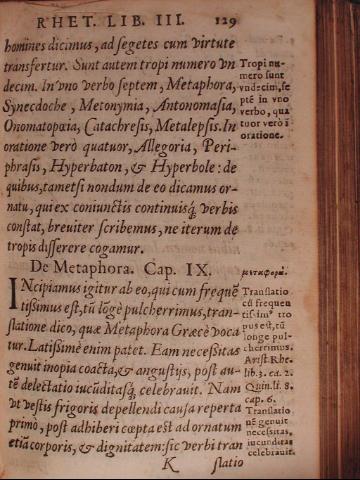 RHET. LIB. III. 129
homines dicimus, ad segetes cum virtute
transfertur. Sunt autem tropi numero vn
decim. In vno verbo septem, Metaphora,
Synecdoche, Metonymia, Antonomasia,
Onomatopœia, Catachresis, Metalepsis. In
oratione verò quatuor, Allegoria, Peri-
phrasis, Hyperbaton, & Hyperbole: de
quibus, tametsi nondum de eo dicamus or-
natu, qui ex coniunctis continuisq́; verbis
constat, breuiter scribemus, ne iterum de
tropis disserere cogamur.
Tropi nu-
mero sunt
vndecim, se
ptē in vno
verbo, qua
tuor verò ī
oratione.
De Metaphora. Cap. IX.
INcipiamus igitur ab eo, qui cum frequē
tissimus est, tū lōgè pulcherrimus, tran-
slatione dico, quæ Metaphora Græcè voca
tur. Latissimè enim patet. Eam necessitas
genuit inopia coacta, & angustijs, post au-
tē delectatio iucūditasq́; celebrauit. Nam
vt vestis frigoris depellendi causa reperta
primò, post adhiberi cœpta est ad ornatum
etiā corporis, & dignitatem: sic verbi tran
μεταφορα.
Translatio
cū frequen
tissim' tro
pus est, tū
longe pul-
cherrimus.
Arist. Rhe.
lib. 3. ca. 2.
Quin. li. 8.
cap. 6.
Translatio
nē genuit
necessitas,
iucunditas
celebrauit.
K slatio